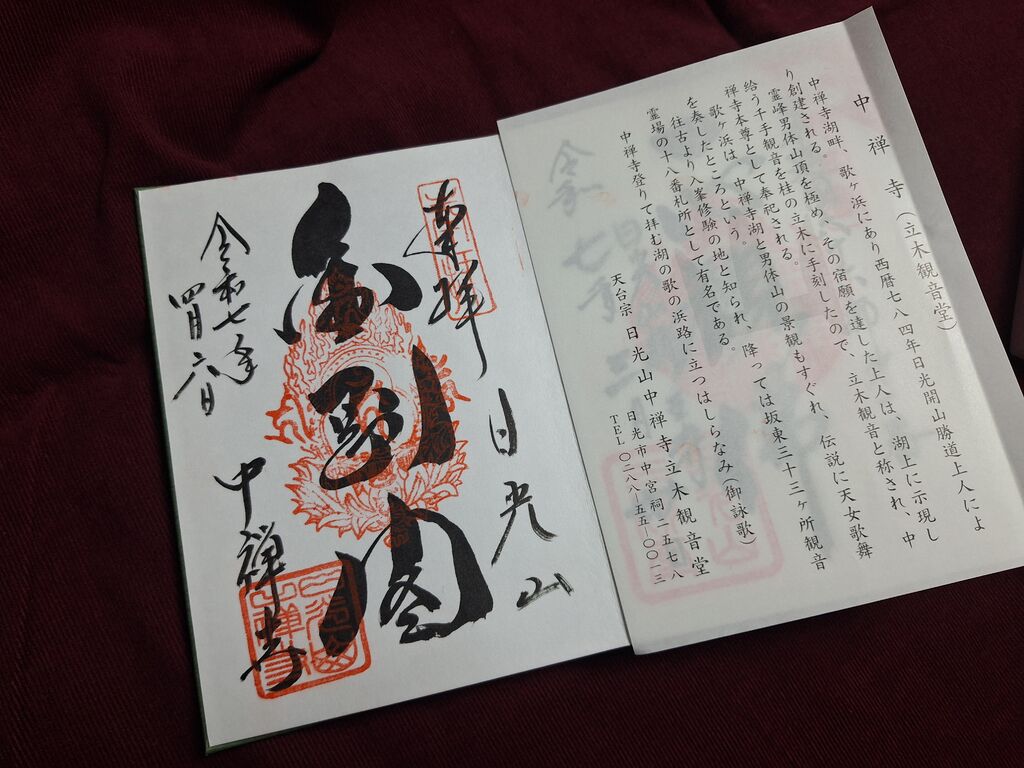 中禅寺(立木観音堂)
中禅寺湖畔、歌ヶ浜にあり西暦七八四年日光開山勝道上人によ
り創建される。
霊峰男体山頂を極め、その宿願を達した上人は、湖上に示現し
給う千手観音を桂の立木に手刻したので、立木観音と称され、中
禅寺本尊として奉祀される。
歌ヶ浜は、中禅寺湖と男体山の景観もすぐれ、伝説に天女歌舞
を奏したところという。
往古より入峯修験の地と知られ、降っては坂東三十三ヶ所観音
霊場の十八番札所として有名である。
中禅寺登りて拝む湖の歌の浜路に立つはしらなみ(御詠歌)
天台宗 日光山中禅寺立木観音堂
日光市中宮祠二五七八
TEL〇二八八-五五-〇〇一三
奉拝
日光山
令和七年
四月六日
中禅寺